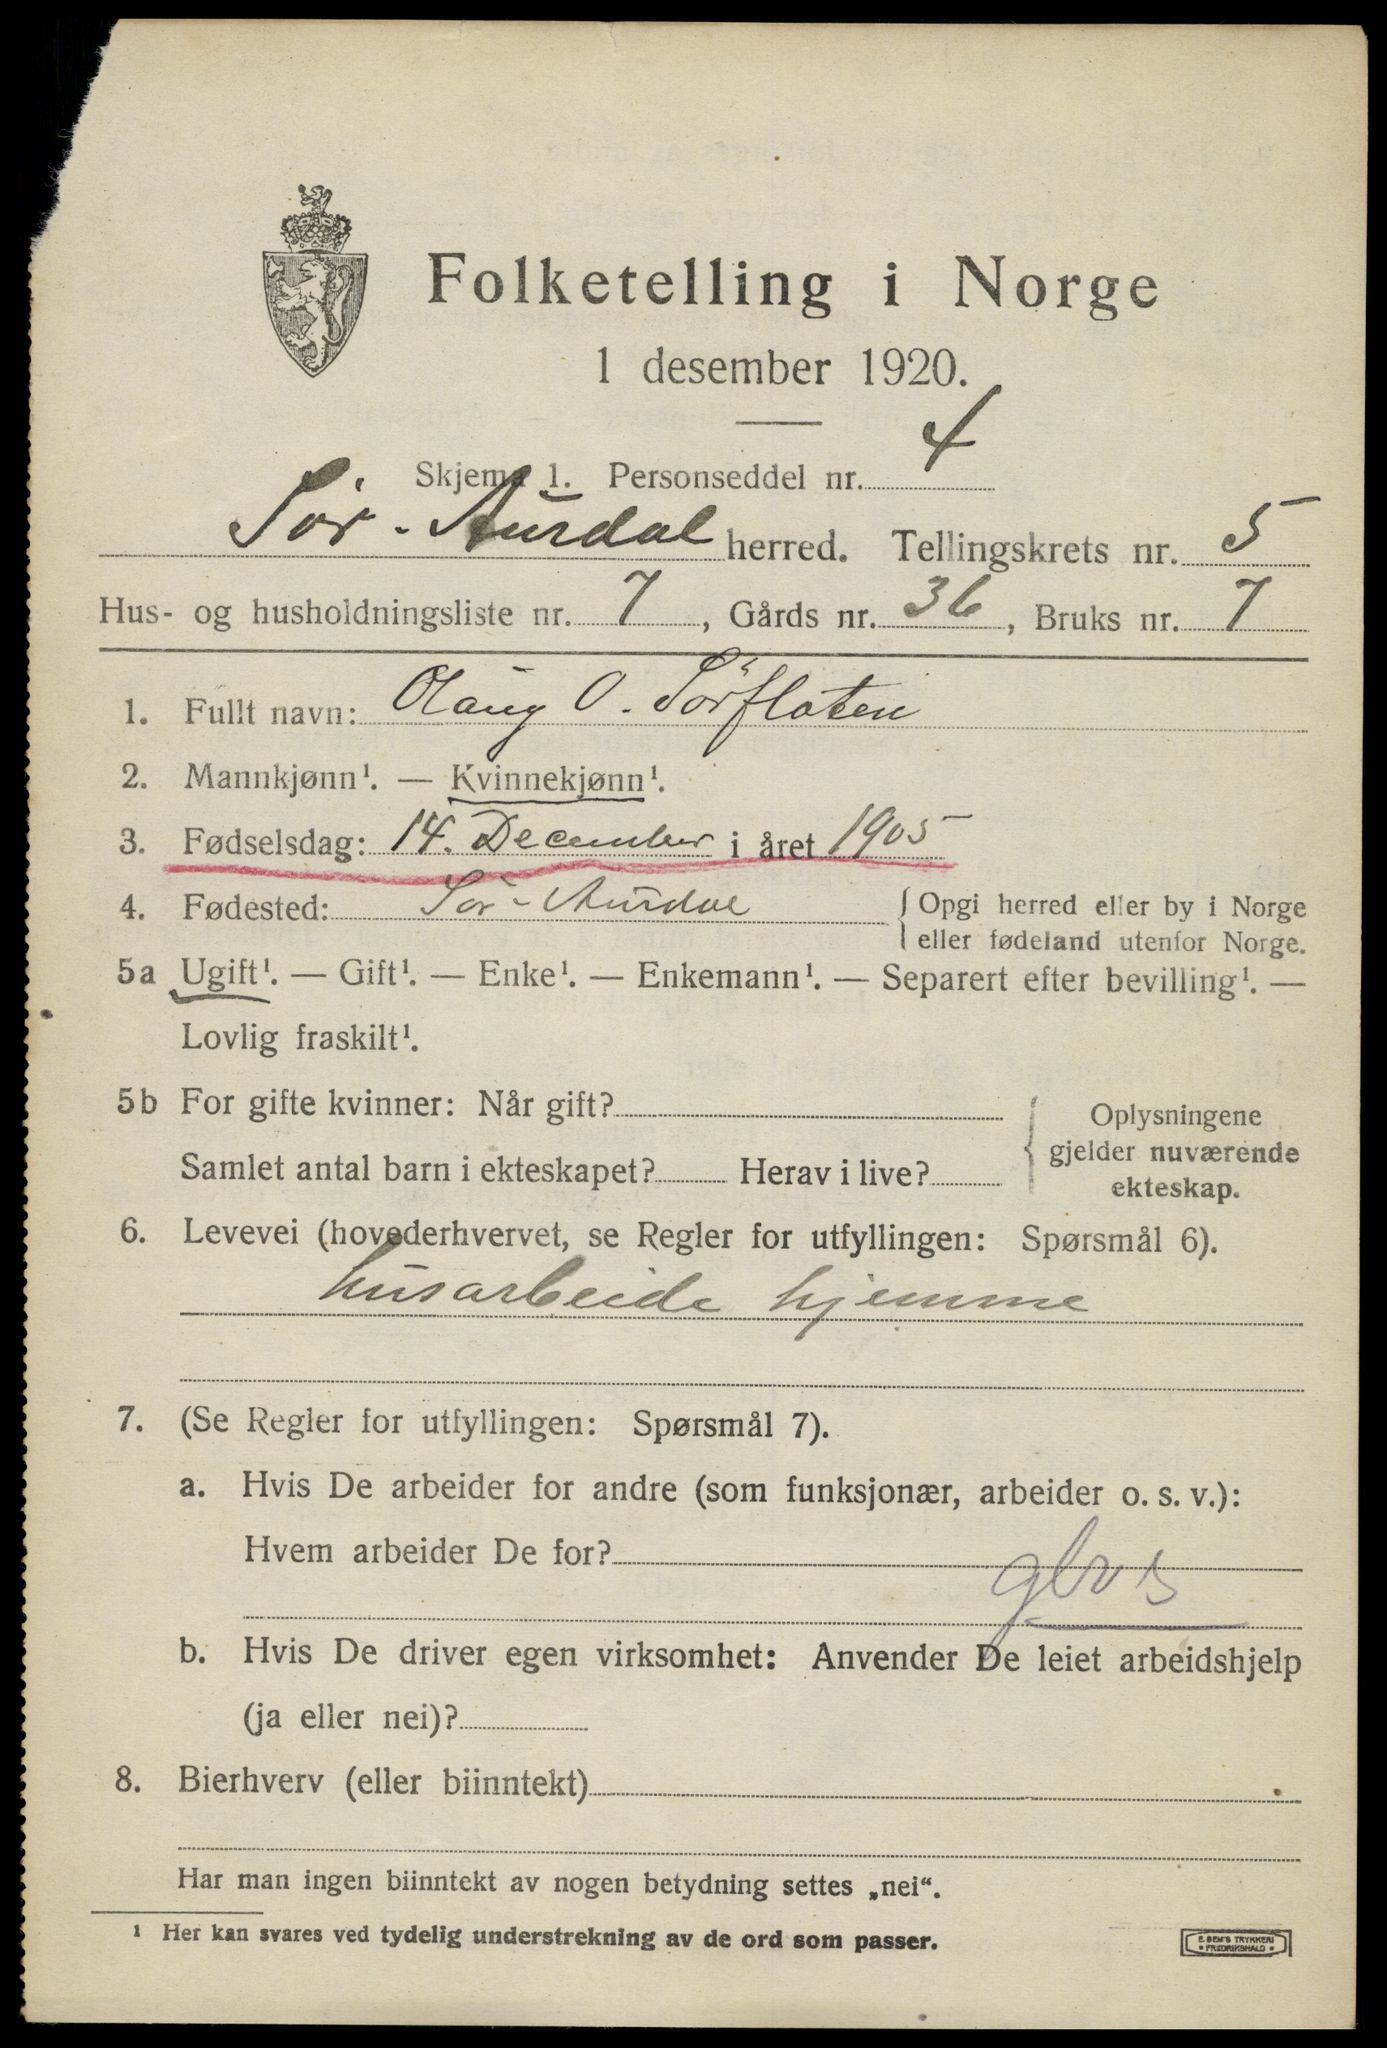 Folketelling i Norge
1 desember 1920.
Skjema 1. Personseddel nr. 4
Sör-Aurdal herred. Tellingskrets nr. 5
Hus- og husholdningsliste nr. 7, Gårds nr. 36, Bruks nr. 7
1. Fullt navn: Olaug O. Sörflaten
2. Mannkjønn¹. — Kvinnekjønn¹.
3. Fødselsdag: 14. December i året 1905
4. Fødested: Sör-Aurdal { Opgi herred eller by i Norge
eller fødeland utenfor Norge.
5a Ugift¹. — Gift¹. — Enke¹. — Enkemann¹. — Separert efter bevilling¹. —
Lovlig fraskilt¹.
5b For gifte kvinner: Når gift?
Samlet antal barn i ekteskapet? Herav i live?
Oplysningene
gjelder nuværende
ekteskap.
6. Levevei (hovederhvervet, se Regler for utfyllingen: Spørsmål 6).
husarbeide hjemme
7. (Se Regler for utfyllingen: Spørsmål 7).
a. Hvis De arbeider for andre (som funksjonær, arbeider o. s. v.):
Hvem arbeider De for?
b. Hvis De driver egen virksomhet: Anvender De leiet arbeidshjelp
(ja eller nei)?
8. Bierhverv (eller biinntekt)
Har man ingen biinntekt av nogen betydning settes „nei“.
¹ Her kan svares ved tydelig understrekning av de ord som passer.
E. SEM'S TRYKKERI
• FREDRIKSHALD •